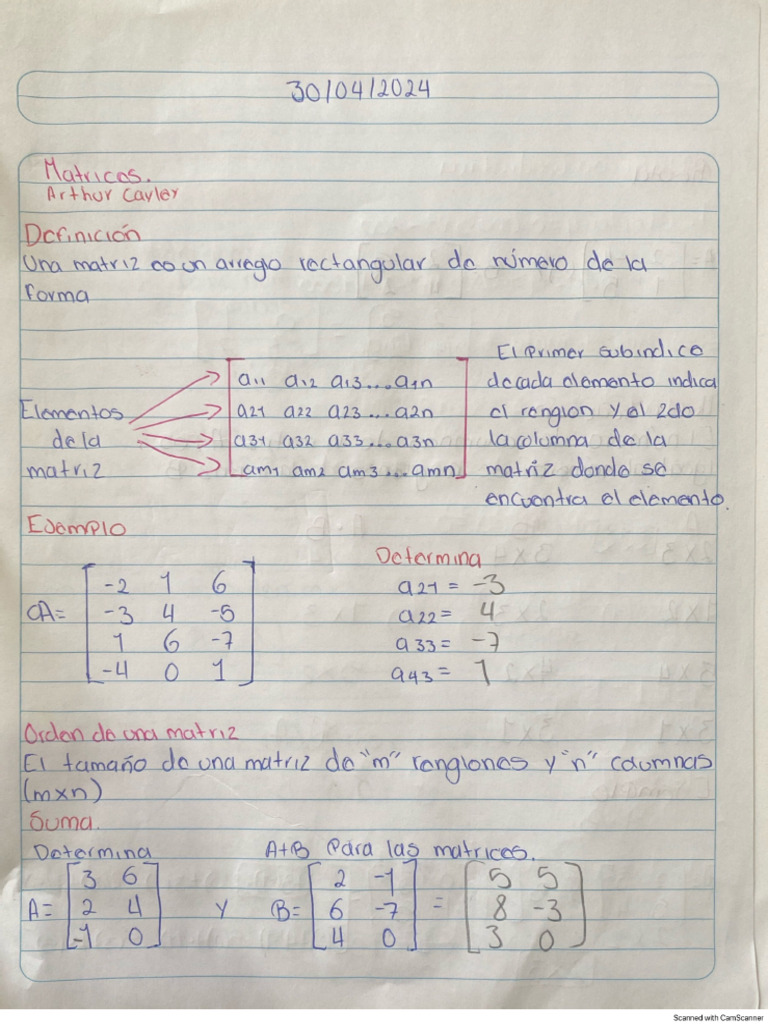 30/04/2024
Matrices.
Arthur Cayley
Definición
Una matriz es un arreglo rectangular de número de la
forma
Elementos
de la
matriz
a11 a12 a13...a1n
a21 a22 a23...a2n
a31 a32 a33...a3n
am1 am2 am3...amn
El primer subindice
de cada elemento indica
el renglon y el 2do
la columna de la
matriz donde se
encuentra el elemento.
Ejemplo
A=
-2 1 6
-3 4 -5
1 6 -7
-4 0 1
Determina
a21 = -3
a22 = 4
a33 = -7
a43 = 1
Orden de una matriz
El tamaño de una matriz de "m" renglones y "n" columnas
(mxn)
Suma.
Determina A+B Para las matrices.
3 6 2 -1 5 5
A= 2 4 y B= 6 -7 = 8 -3
-1 0 4 0 3 0
Scanned with CamScanner